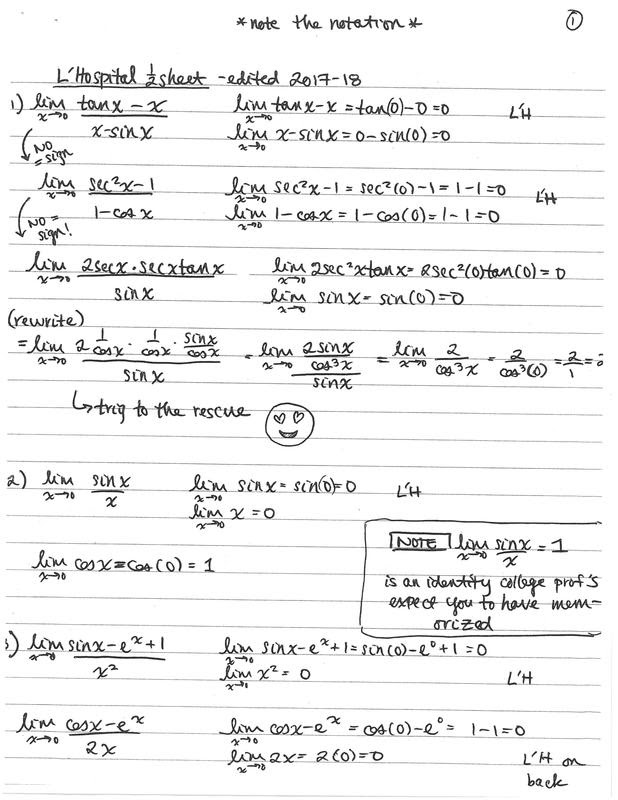 *note the notation* ①
L'Hospital ½ sheet - edited 2017-18
1) lim x→0 (tanx - x)/(x - sinx)   lim x→0 tanx - x = tan(0) - 0 = 0   L'H
lim x→0 x - sinx = 0 - sin(0) = 0
NO = sign
lim x→0 (sec²x - 1)/(1 - cosx)   lim x→0 sec²x - 1 = sec²(0) - 1 = 1 - 1 = 0   L'H
lim x→0 1 - cosx = 1 - cos(0) = 1 - 1 = 0
NO = sign!
lim x→0 (2secx · secxtanx)/(sinx)   lim x→0 2sec²xtanx = 2sec²(0)tan(0) = 0
lim x→0 sinx = sin(0) = 0
(rewrite)
= lim x→0 (2 1/cosx · 1/cosx · sinx/cosx)/(sinx) = lim x→0 (2sinx/cos³x)/(sinx) = lim x→0 2/cos³x = 2/cos³(0) = 2/1 =
↳ trig to the rescue
2) lim x→0 sinx/x   lim x→0 sinx = sin(0) = 0   L'H
lim x→0 x = 0
NOTE lim x→0 sinx/x = 1
lim x→0 cosx = cos(0) = 1
is an identity college prof's
expect you to have mem-
orized
) lim x→0 (sinx - eˣ + 1)/x²   lim x→0 sinx - eˣ + 1 = sin(0) - e⁰ + 1 = 0
lim x² = 0   L'H
lim x→0 (cosx - eˣ)/2x   lim x→0 cosx - eˣ = cos(0) - e⁰ = 1 - 1 = 0
lim x→0 2x = 2(0) = 0   L'H on
back